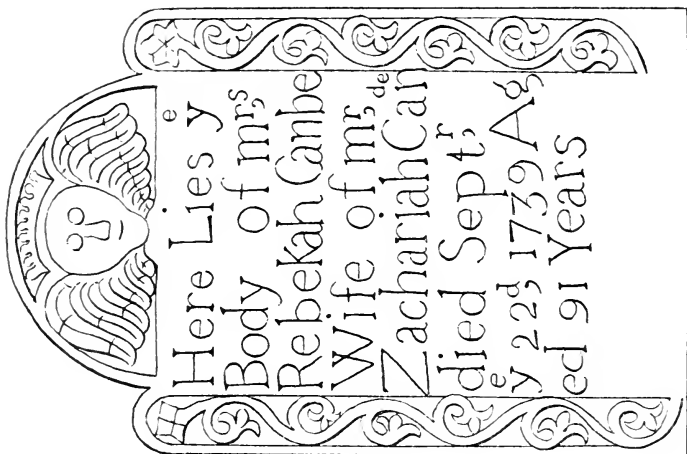 Here Lies yᵉ
Body of mʳˢ,
Rebekah Canbe
Wife of mʳ, ᵈᵉ
Zachariah Can
died Septʳ,
yᵉ 22ᵈ, 1739 Ag
ed 91 Years